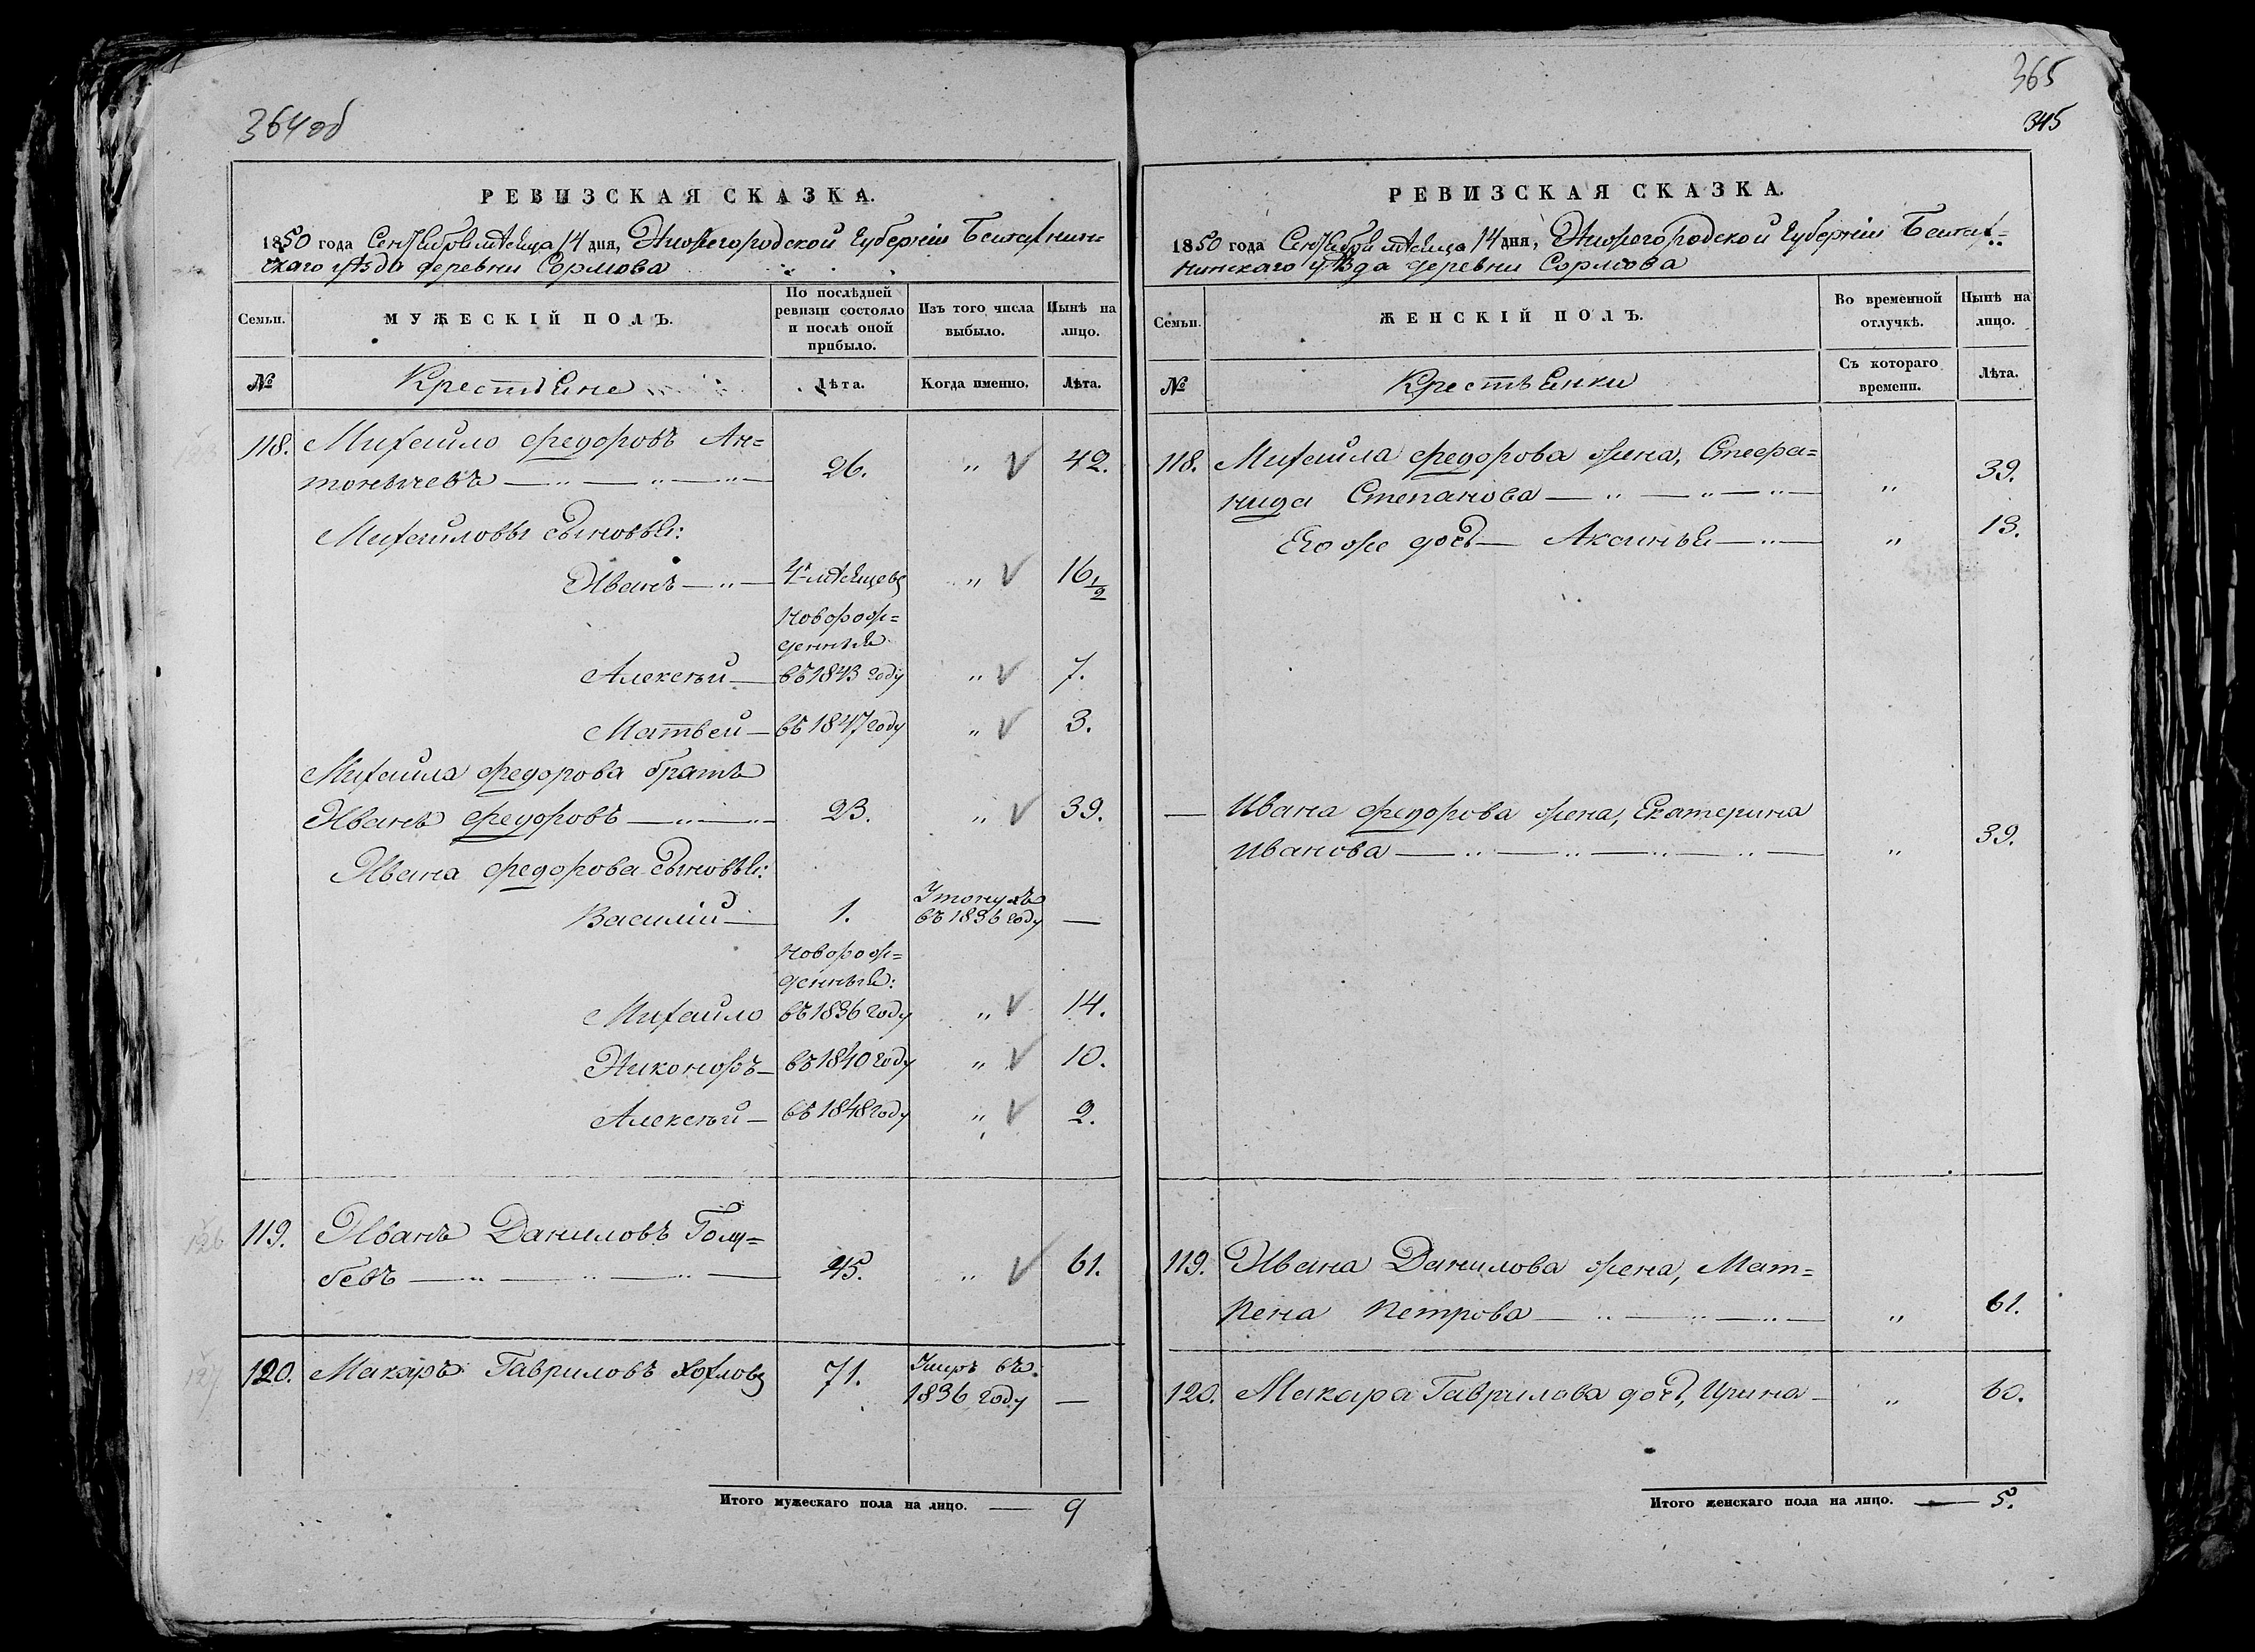 364 об
РЕВИЗСКАЯ СКАЗКА.
1850 года Сентября месяца 14 дня, Нижегородской Губернии Балахнин=
скаго уѣзда деревни Сормова
Семьи.
МУЖЕСКІЙ ПОЛЪ.
По послѣдней
ревизіи состояло
и послѣ оной
прибыло.
Изъ того числа
выбыло.
Нынѣ на
лицо.
№
Крестьяне
Лѣта.
Когда именно.
Лѣта.
118. Михайло Федоровъ Ан=
тонычевъ 26. " 42.
Михайловы сыновья:
Иванъ 4х месяцевъ " 16 1/2
Новорож=
денныя
Алексѣй въ 1843 году " 7.
Матвей въ 1847 году " 3.
Михайла Федорова братъ
Иванъ Федоровъ 23. " 39.
Ивана Федорова сыновья:
Василій 1. Утонулъ
въ 1836 году —
Новорож=
денныя:
Михайло въ 1836 году " 14.
Никоноръ въ 1840 году " 10.
Алексѣй въ 1848 году " 2.
119. Иванъ Даниловъ Голу=
бевъ 45. " 61.
120. Макаръ Гавриловъ Хохловъ 71. Умеръ въ
1836 году —
Итого мужескаго пола на лицо. — 9
365
345
РЕВИЗСКАЯ СКАЗКА.
1850 года Сентября месяца 14 дня, Нижегородской Губерніи Балах=
нинскаго уѣзда деревни Сормова
Семьи.
ЖЕНСКІЙ ПОЛЪ.
Во временной
отлучкѣ.
Нынѣ на
лицо.
№
Крестьянки
Съ котораго
времени.
Лѣта.
118. Михайла Федорова жена, Стефа=
нида Степанова " 39.
Его же дочь Аксинья " 13.
— Ивана Федорова жена, Екатерина
Иванова " 39.
119. Ивана Данилова жена, Мат=
рена Петрова " 61.
120. Макара Гаврилова дочь, Ирина " 60.
Итого женскаго пола на лицо. — 5.